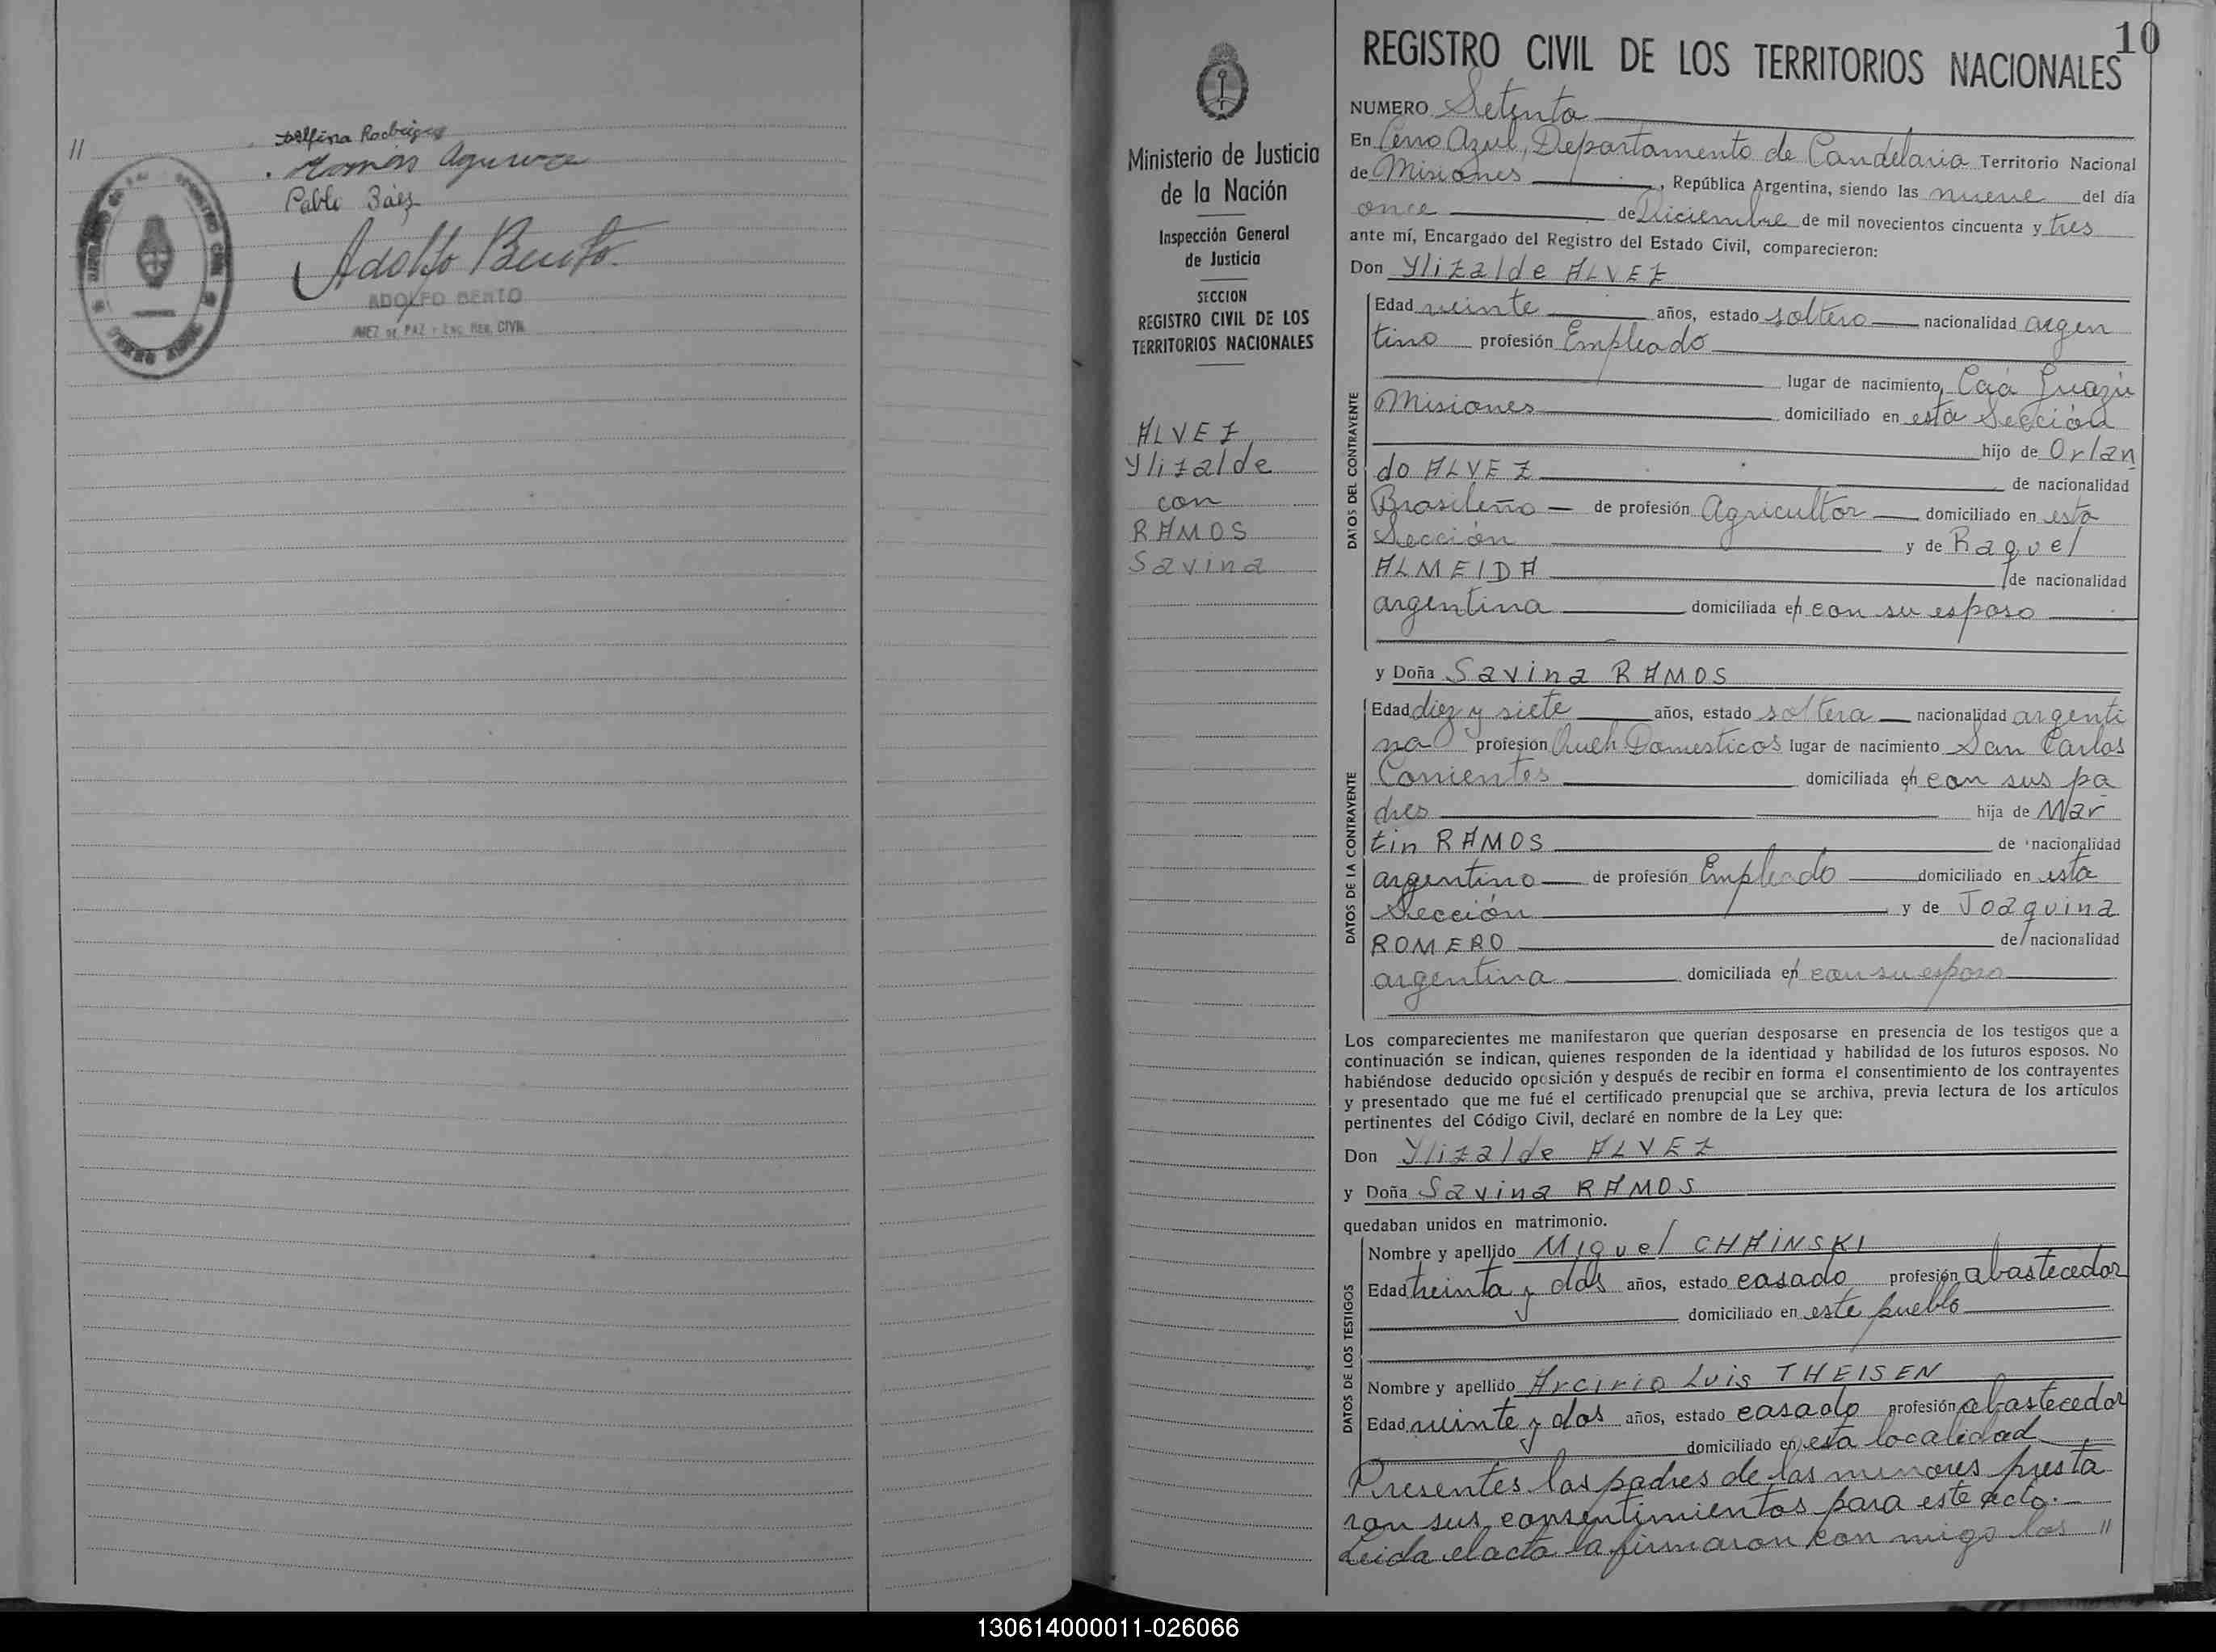 10
11
Delfina Rodriguez
Ramón
Pablo Báez
Adolfo Bento
ADOLFO BENTO
JUEZ DE PAZ Y ENC. REG. CIVIL
Ministerio de Justicia
de la Nación
Inspección General
de Justicia
SECCION
REGISTRO CIVIL DE LOS
TERRITORIOS NACIONALES
ALVEZ
Ylizalde
con
RAMOS
Savina
REGISTRO CIVIL DE LOS TERRITORIOS NACIONALES
NUMERO Setenta
En Cerro Azul, Departamento de Candelaria Territorio Nacional
de Misiones, República Argentina, siendo las nueve del día
once de Diciembre de mil novecientos cincuenta y tres
ante mí, Encargado del Registro del Estado Civil, comparecieron:
Don Ylizalde ALVEZ
DATOS DEL CONTRAYENTE
Edad veinte años, estado soltero nacionalidad argen
tino profesión Empleado
lugar de nacimiento Caá Guazú
Misiones domiciliado en esta Sección
hijo de Orlan
do ALVEZ de nacionalidad
Brasileño de profesión Agricultor domiciliado en esta
Sección y de Raquel
ALMEIDA de nacionalidad
argentina domiciliada en con su esposo
y Doña Savina RAMOS
DATOS DE LA CONTRAYENTE
Edad diez y siete años, estado soltera nacionalidad argenti
na profesión Queh Domesticos lugar de nacimiento San Carlos
Corrientes domiciliada en con sus pa
dres hija de Mar
tin RAMOS de nacionalidad
argentino de profesión Empleado domiciliado en esta
Sección y de Joaquina
ROMERO de nacionalidad
argentina domiciliada en con su esposo
Los comparecientes me manifestaron que querían desposarse en presencia de los testigos que a
continuación se indican, quienes responden de la identidad y habilidad de los futuros esposos. No
habiéndose deducido oposición y después de recibir en forma el consentimiento de los contrayentes
y presentado que me fué el certificado prenupcial que se archiva, previa lectura de los artículos
pertinentes del Código Civil, declaré en nombre de la Ley que:
Don Ylizalde ALVEZ
y Doña Savina RAMOS
quedaban unidos en matrimonio.
DATOS DE LOS TESTIGOS
Nombre y apellido Miguel CHAINSKI
Edad treinta y dos años, estado casado profesión abastecedor
domiciliado en este pueblo
Nombre y apellido Arcirio Luis THEISEN
Edad veinte y dos años, estado casado profesión abastecedor
domiciliado en esta localidad
Presentes los padres de los menores presta
ron sus consentimientos para este acto.
Leida el acta la firmaron con migo los "
130614000011-026066